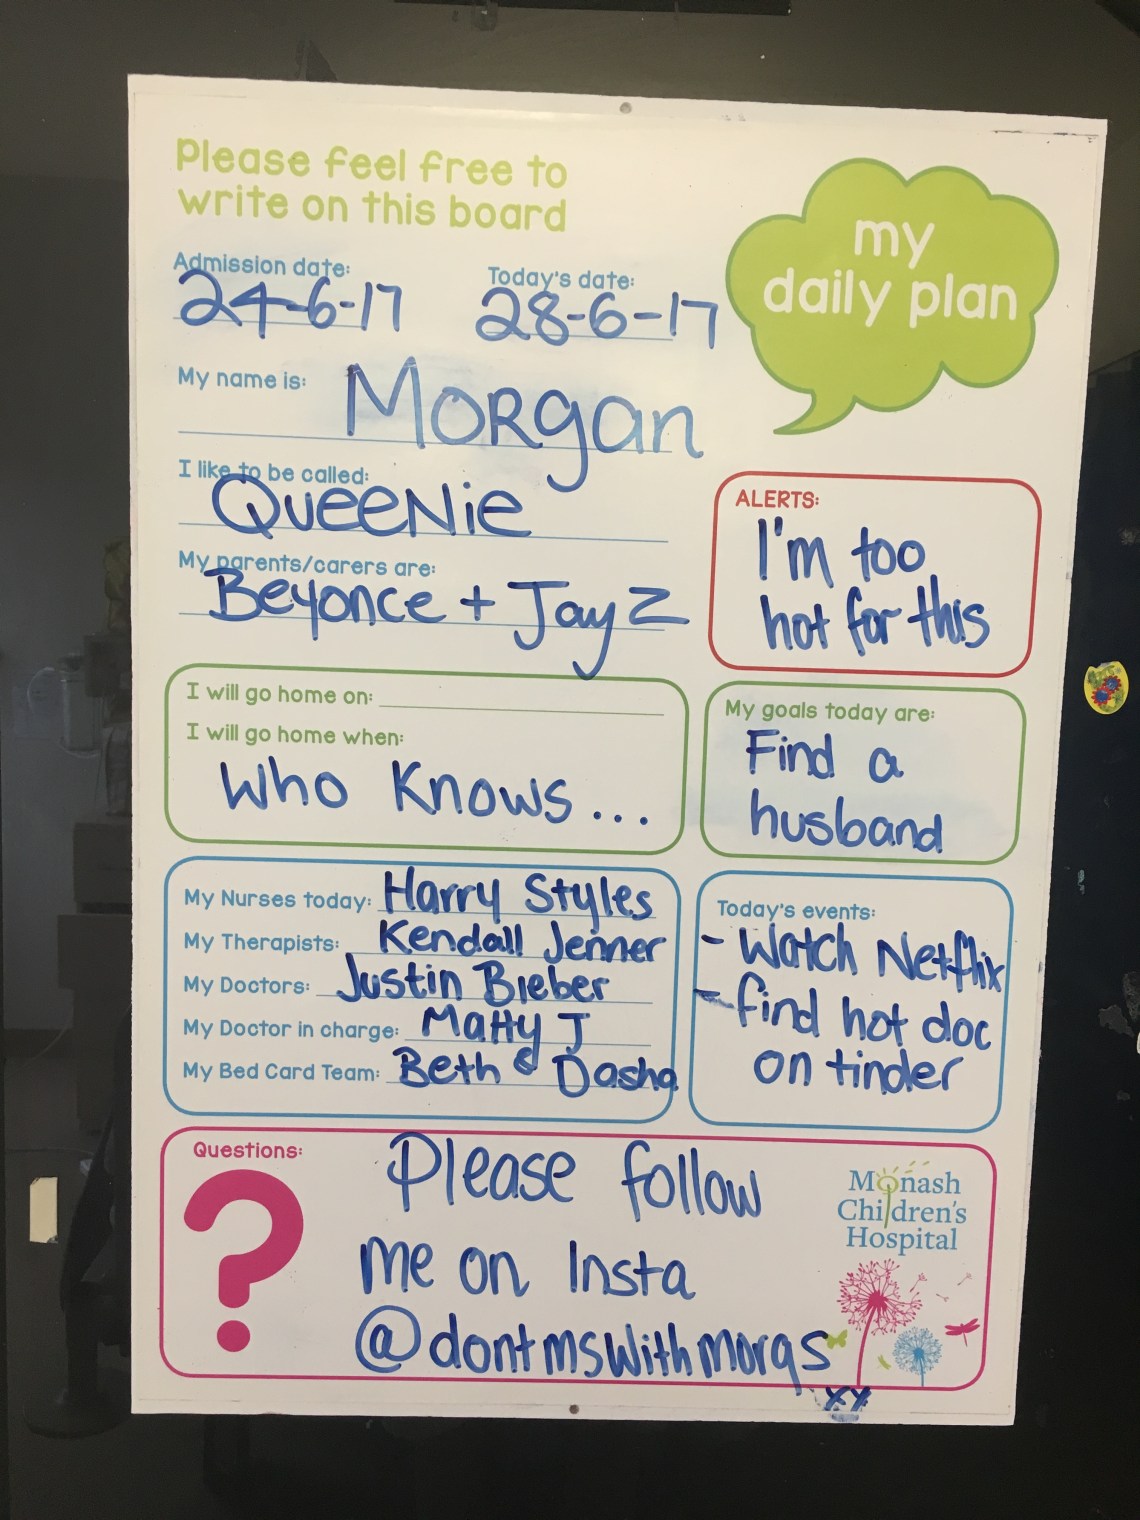 Please feel free to
write on this board
my
daily plan
Admission date: 24-6-17
Today's date: 28-6-17
My name is: Morgan
I like to be called: QueeNie
My parents/carers are: Beyonce + Jay Z
ALERTS:
I'm too
hot for this
I will go home on:
I will go home when:
Who Knows...
My goals today are:
Find a
husband
My Nurses today: Harry Styles
My Therapists: Kendall Jenner
My Doctors: Justin Bieber
My Doctor in charge: Matty J
My Bed Card Team: Beth & Dasha
Today's events:
- Watch Netflix
- find hot doc
on tinder
Questions:
?
Please follow
me on Insta
@dontmswithmorgs
xx
Monash
Children's
Hospital